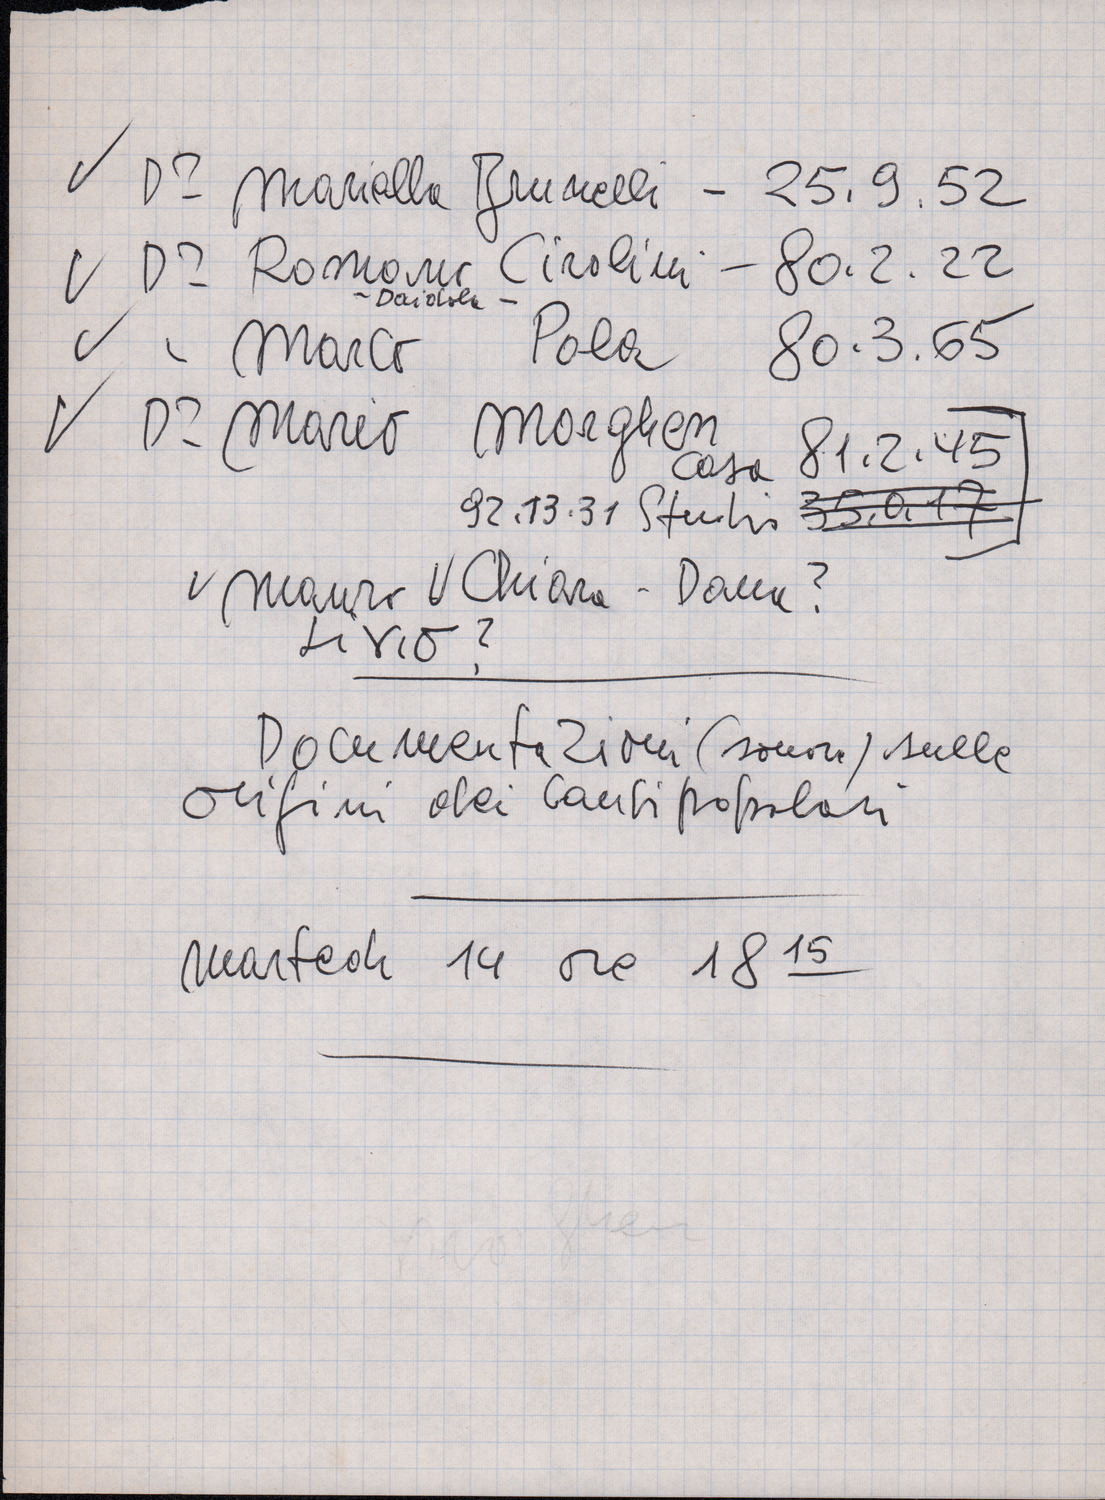 ✓ Dr Mariella Brunelli - 25.9.52
✓ Dr Romano Cirolini - 80.2.22
✓ " Marco Pola 80.3.65
✓ Dr Mario Morghen
casa 81.2.45
92.13.31 Studio 35.0.17
✓ Mauro ✓ Chiara - Dana?
Livio?
Documentazioni (sonore) sulle
origini dei Canti popolari
martedi 14 ore 18 15